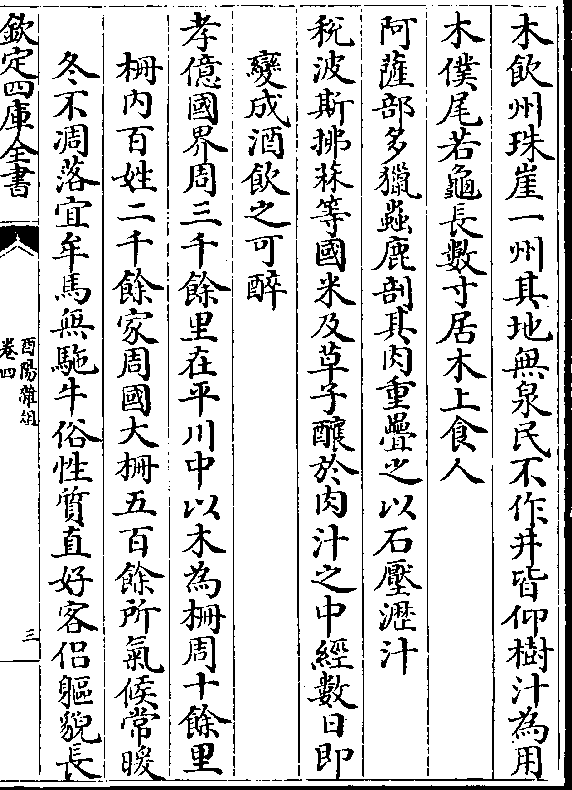 木飲州珠崖一州其地無泉民不作井皆仰樹汁為用
木僕尾若龜長數寸居木上食人
阿薩部多獵蟲鹿剖其肉重疊之以石壓瀝汁
稅波斯拂菻等國米及草子釀於肉汁之中經數日即
變成酒飲之可醉
孝億國界周三千餘里在平川中以木為柵周十餘里
柵内百姓二千餘家周國大柵五百餘所氣候常暖
冬不凋落宜牟馬無駞牛俗性質直好客侣軀貌長
欽定四庫全書
酉陽雜俎
卷四
三